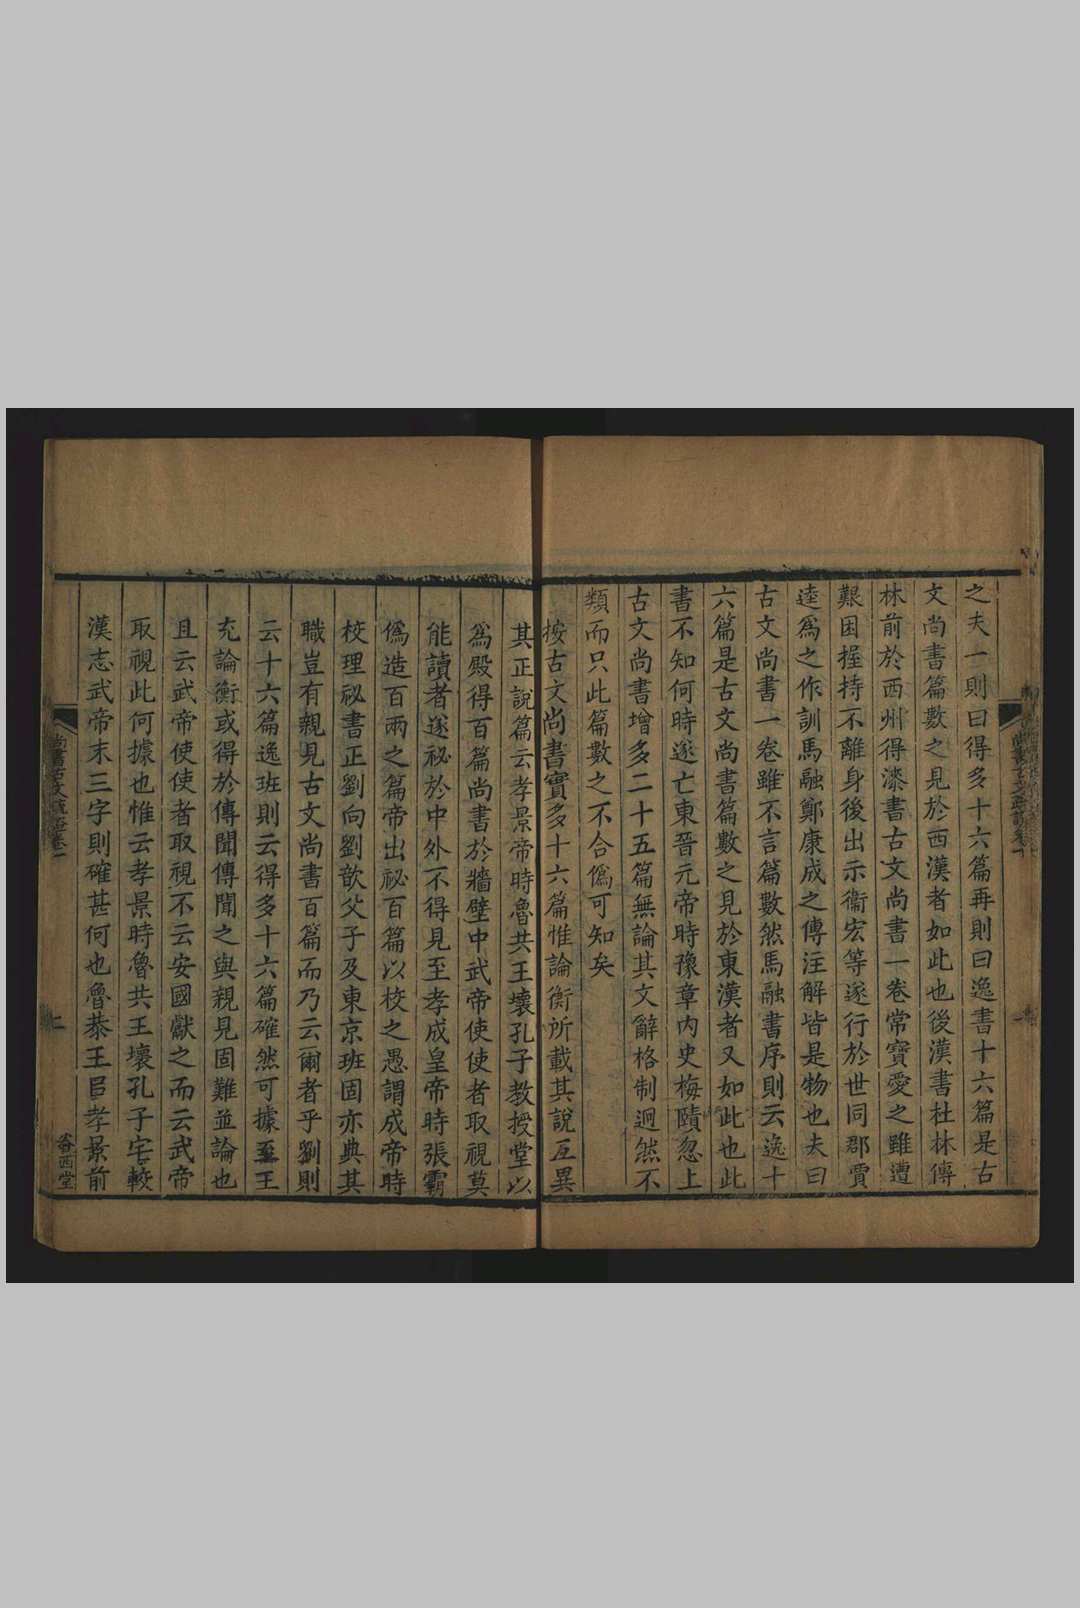 之夫一則曰得多十六篇再則曰逸書十六篇是古
文尚書篇數之見於西漢者如此也後漢書杜林傳
林前於西州得漆書古文尚書一卷常寶愛之雖遭
艱困握持不離身後出示衞宏等遂行於世同郡賈
逵爲之作訓馬融鄭康成之傳注解皆是物也夫曰
古文尚書一卷雖不言篇數然馬融書序則云逸十
六篇是古文尚書篇數之見於東漢者又如此也此
書不知何時遂亡東晉元帝時豫章内史梅賾忽上
古文尚書增多二十五篇無論其文辭格制迥然不
類而只此篇數之不合僞可知矣
按古文尚書實多十六篇惟論衡所載其說互異
其正說篇云孝景帝時魯共王壞孔子教授堂以
爲殿得百篇尚書於牆壁中武帝使使者取視莫
能讀者遂祕於中外不得見至孝成皇帝時張霸
僞造百兩之篇帝出祕百篇以校之愚謂成帝時
校理祕書正劉向劉歆父子及東京班固亦典其
職豈有親見古文尚書百篇而乃云爾者乎劉則
云十六篇逸班則云得多十六篇確然可據至王
充論衡或得於傳聞傳聞之與親見固難並論也
且云武帝使使者取視不云安國獻之而云武帝
取視此何據也惟云孝景時魯共王壞孔子宅較
漢志武帝末三字則確甚何也魯恭王㠯孝景前
尚書古文疏證卷一
二
眷西堂